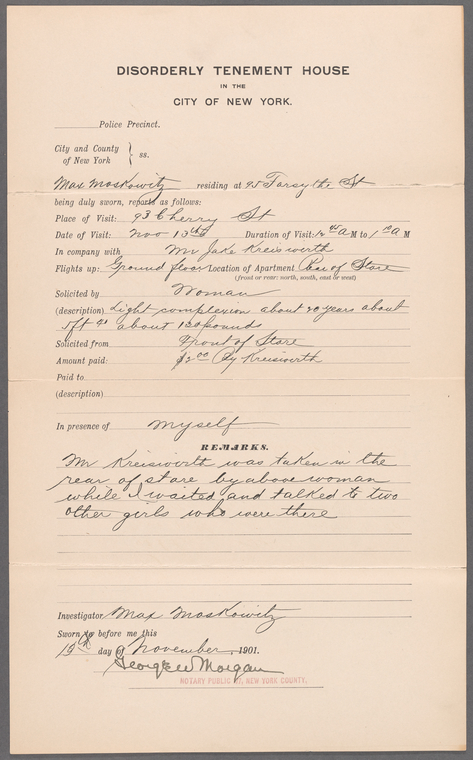 DISORDERLY TENEMENT HOUSE
IN THE
CITY OF NEW YORK.
Police Precinct.
City and County
of New York } ss.
Max Moskowitz residing at 95 Forsythe St
being duly sworn, reports as follows:
Place of Visit: 93 Cherry St
Date of Visit: Nov 13th Duration of Visit: A M to A M
In company with Mr Jake Kreiswirth
Flights up: Ground floor Location of Apartment Rear of Store
(front or rear: north, south, east or west)
Solicited by Woman
(description) Light complexion about 20 years about
5ft about pounds
Solicited from Front of Store
Amount paid: $2.00 By Kreiswirth
Paid to
(description)
In presence of myself
REMARKS.
Mr Kreiswirth was taken in the
rear of store by above woman
while I waited and talked to two
other girls who were there
Investigator Max Moskowitz
Sworn to before me this
day of November, 1901.
George W Morgan
NOTARY PUBLIC NEW YORK COUNTY.